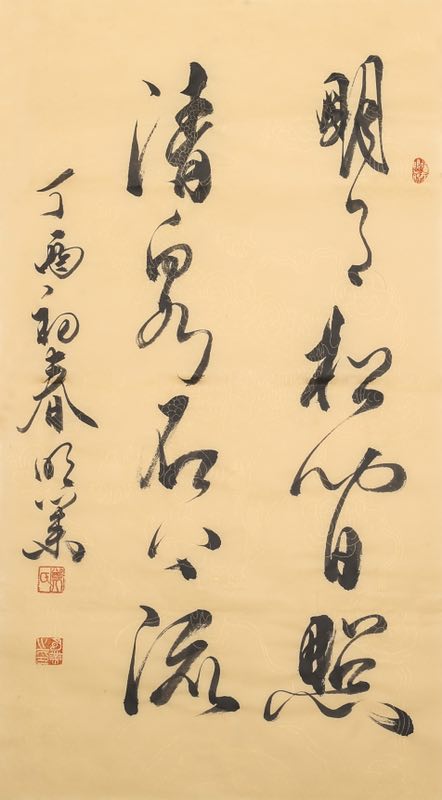 明月松间照
清泉石上流
丁酉初春明业